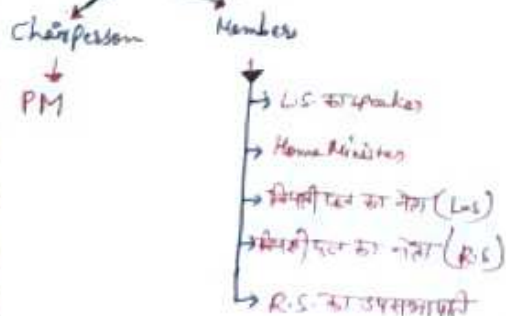 Chairperson
Members
PM
L.S. का speaker
Home Minister
विपक्षी दल का नेता (L.S)
विपक्षी दल का नेता (R.S)
R.S. का उपसभापति